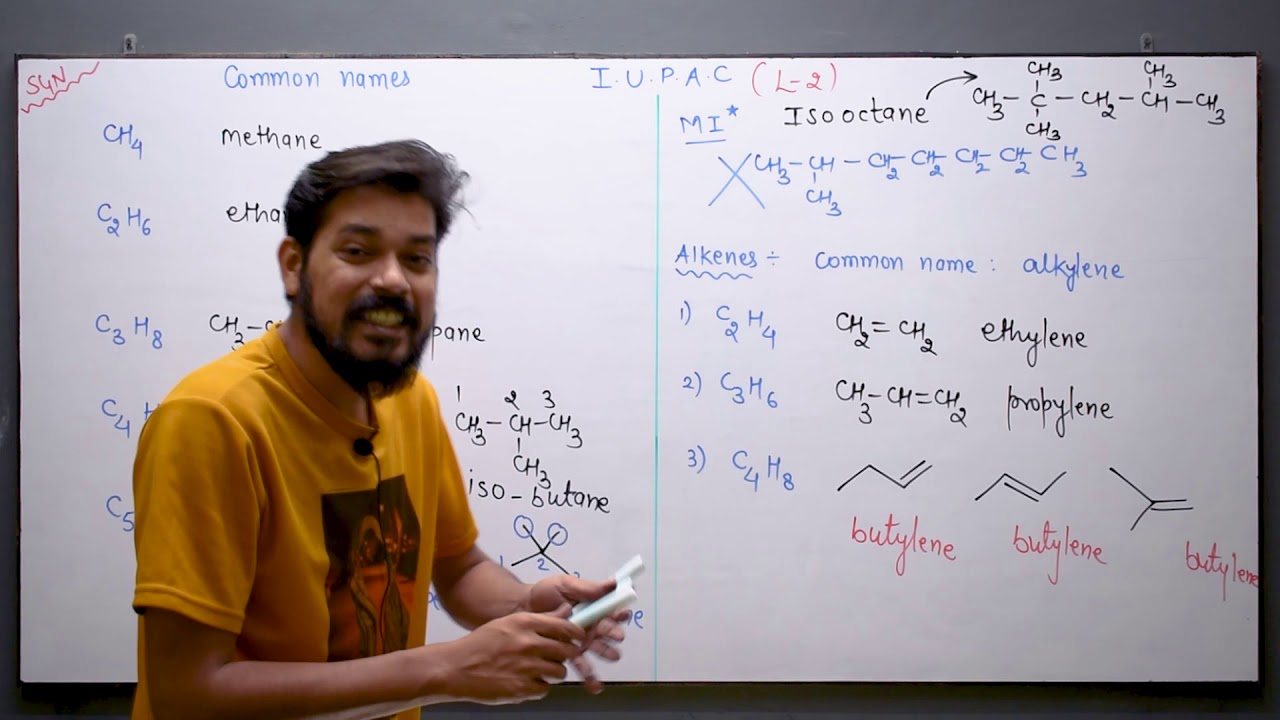 SGN
Common names
CH4 methane
C2H6
C3H8 CH3-
C4
1 2 3
CH3-CH-CH3
CH3
iso-butane
C5
1 2
I.U.P.A.C (L-2)
MI*
Isooctane
CH3 CH3
CH3-C-CH2-CH-CH3
CH3
CH3-CH-CH2 CH2 CH2 CH2 CH3
CH3
Alkenes ÷ Common name: alkylene
1) C2H4 CH2=CH2 ethylene
2) C3H6 CH3-CH=CH2 propylene
3) C4H8
butylene butylene butylene